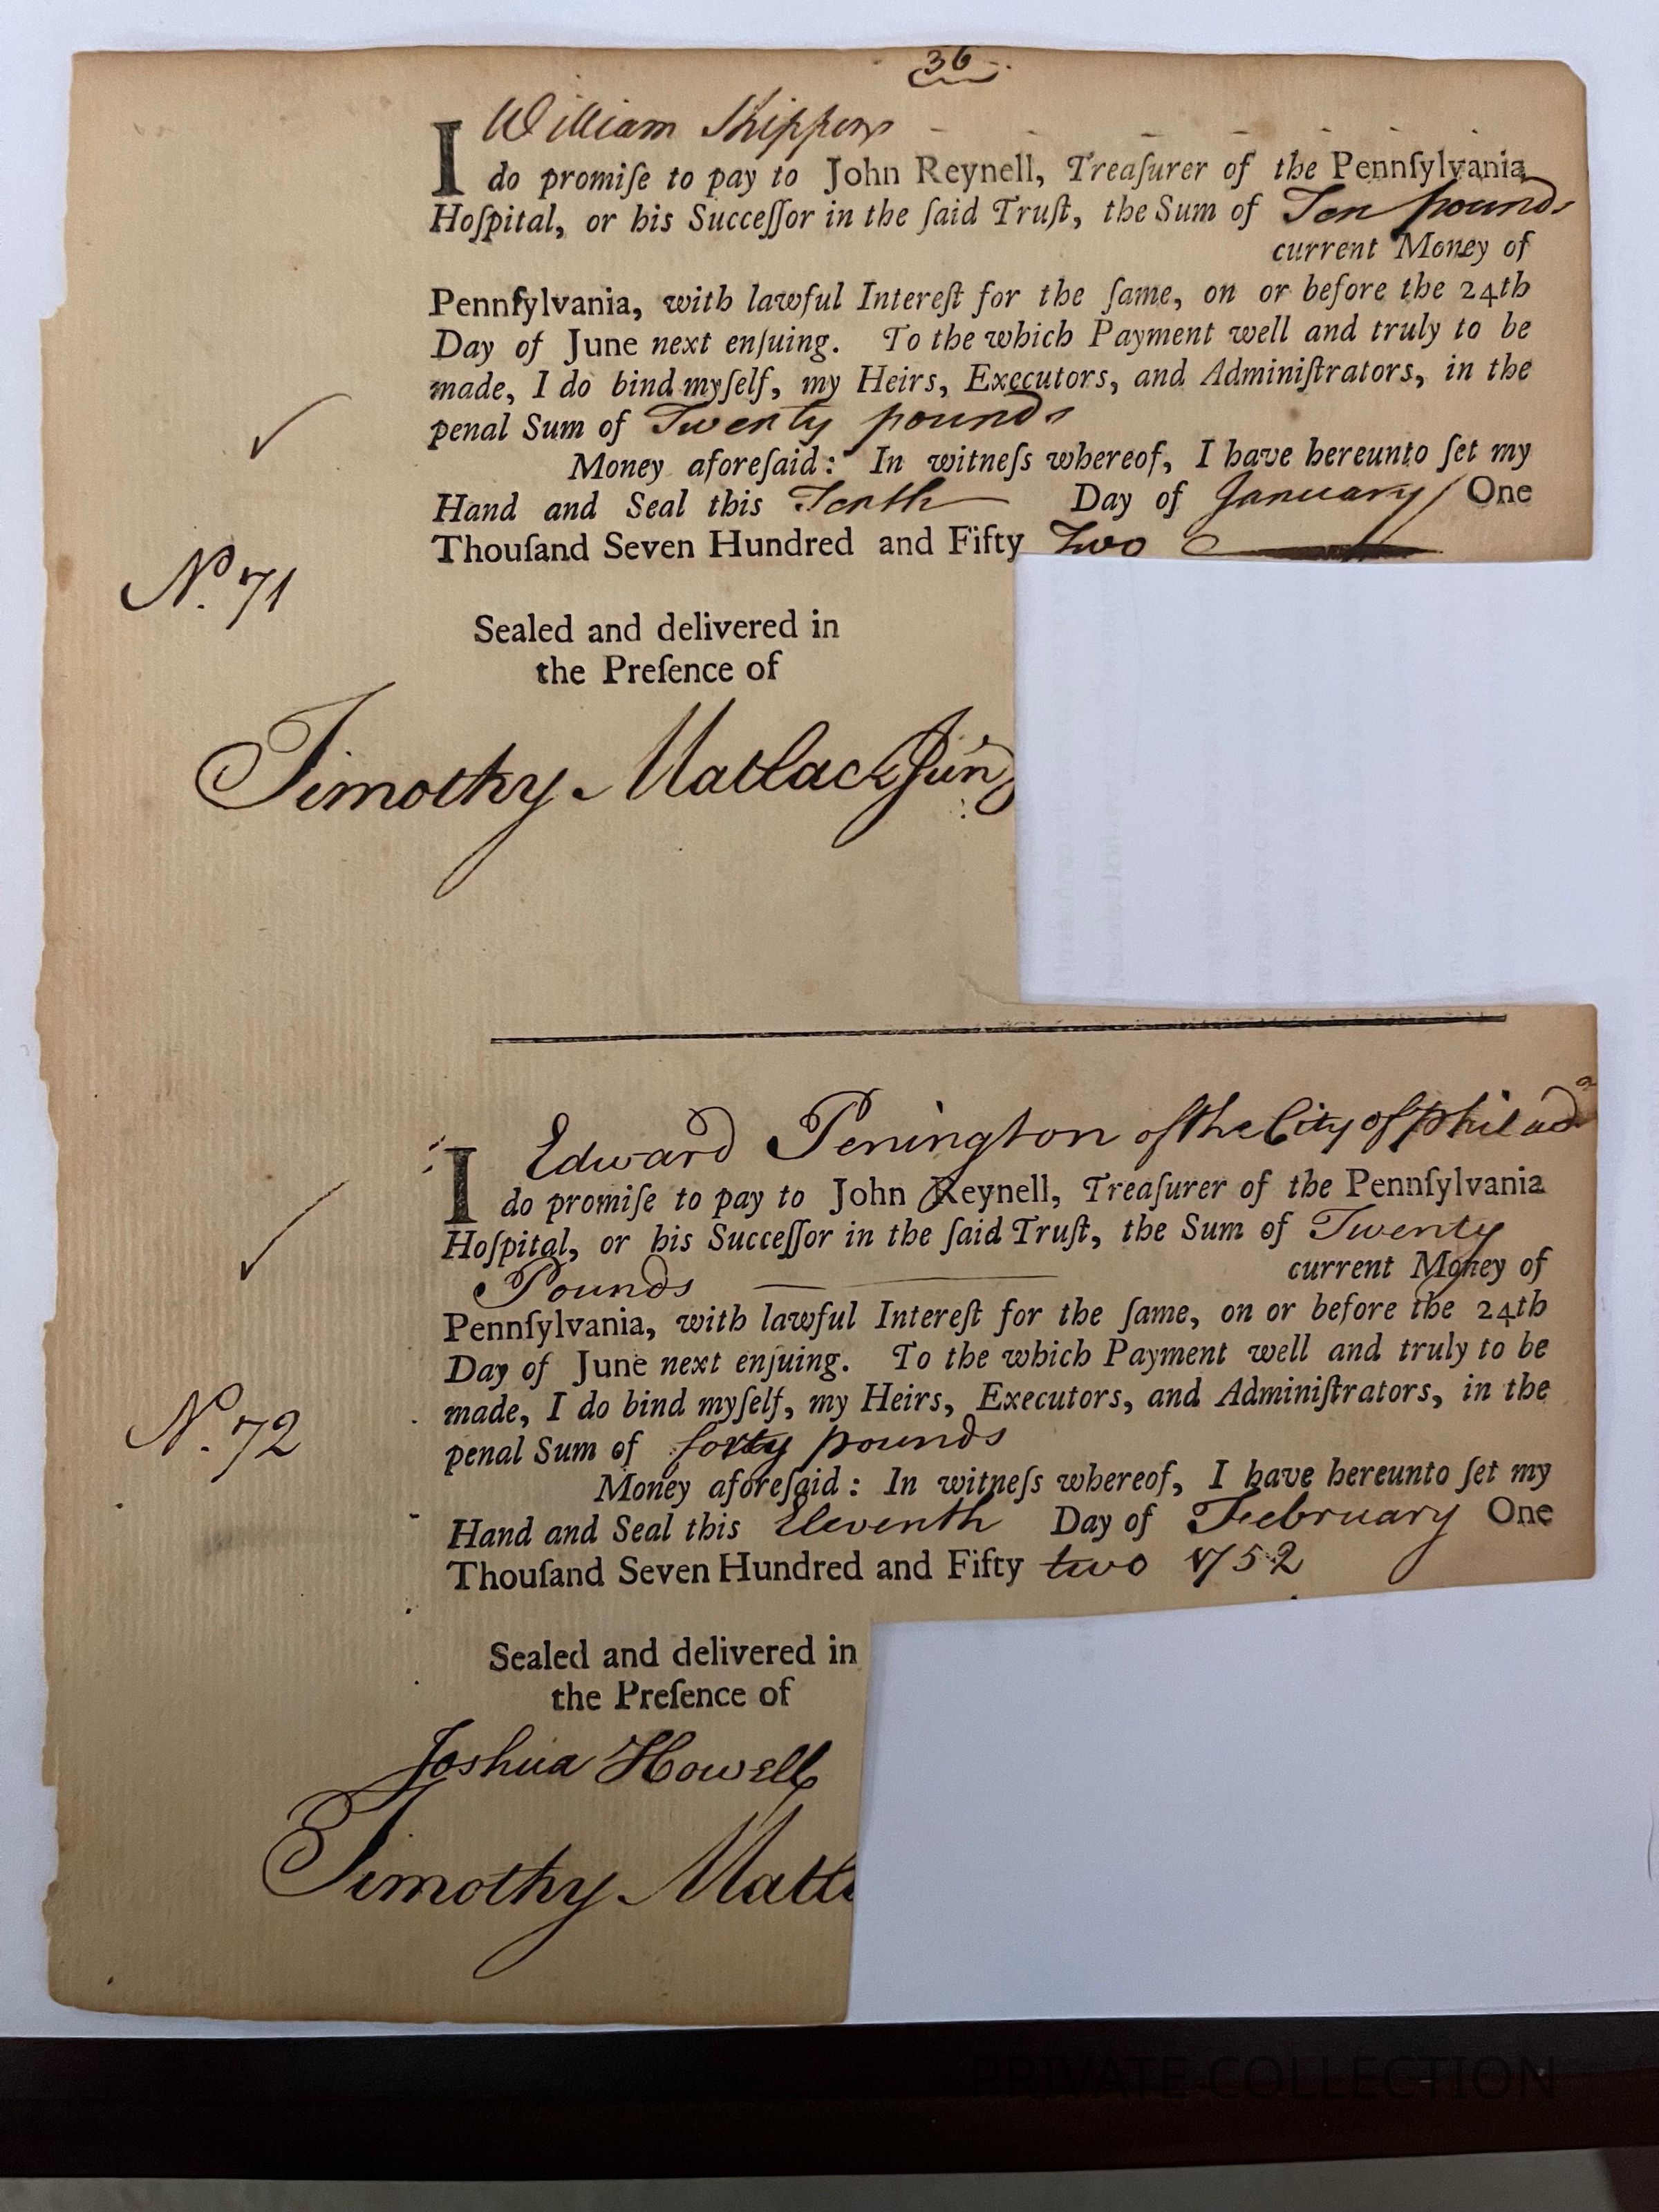 36
I William Shippen
do promiſe to pay to John Reynell, Treaſurer of the Pennſylvania
Hoſpital, or his Succeſſor in the ſaid Truſt, the Sum of Ten pounds
current Money of
Pennſylvania, with lawful Intereſt for the ſame, on or before the 24th
Day of June next enſuing. To the which Payment well and truly to be
made, I do bind myſelf, my Heirs, Executors, and Adminiſtrators, in the
penal Sum of Twenty pounds
Money aforeſaid: In witneſs whereof, I have hereunto ſet my
Hand and Seal this Tenth Day of January One
Thouſand Seven Hundred and Fifty Two
No. 71
Sealed and delivered in
the Preſence of
Timothy Matlack Jun
I Edward Penington of the City of Philad a
do promiſe to pay to John Reynell, Treaſurer of the Pennſylvania
Hoſpital, or his Succeſſor in the ſaid Truſt, the Sum of Twenty
Pounds current Money of
Pennſylvania, with lawful Intereſt for the ſame, on or before the 24th
Day of June next enſuing. To the which Payment well and truly to be
made, I do bind myſelf, my Heirs, Executors, and Adminiſtrators, in the
penal Sum of forty pounds
No. 72
Money aforeſaid: In witneſs whereof, I have hereunto ſet my
Hand and Seal this Eleventh Day of February One
Thouſand Seven Hundred and Fifty two 1752
Sealed and delivered in
the Preſence of
Joshua Howell
Timothy Matl
PRIVATE COLLECTION